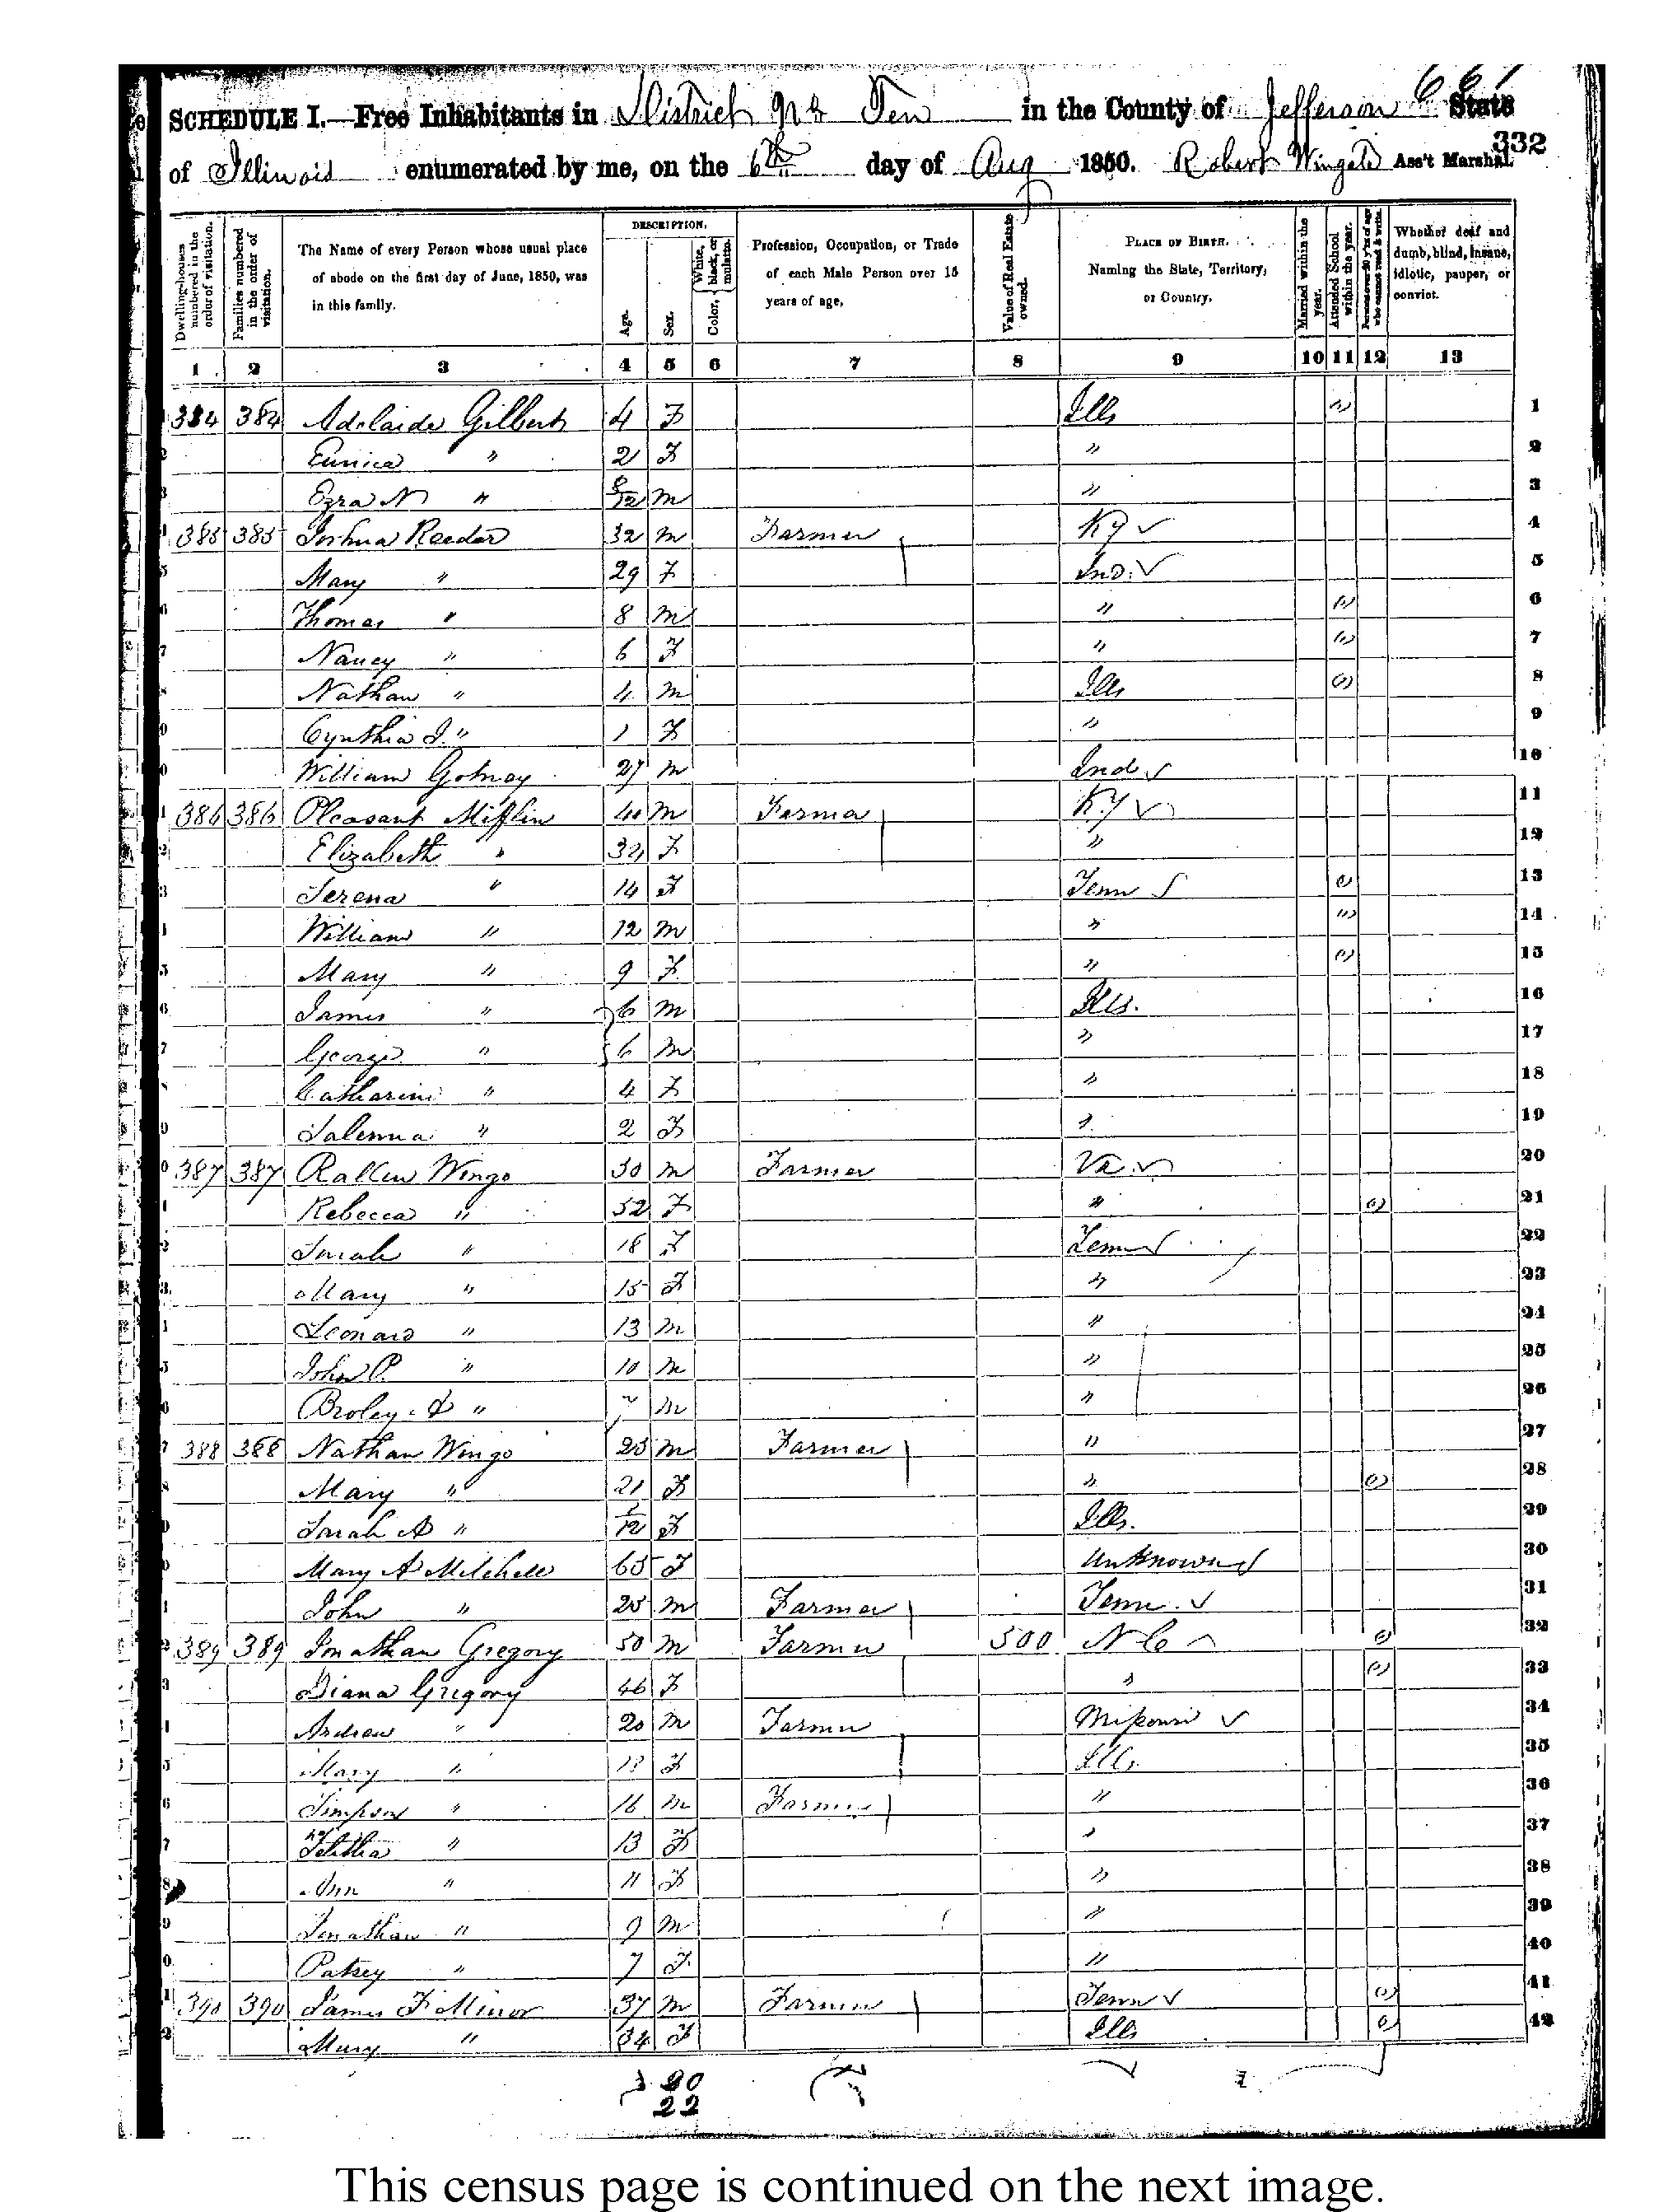 661
SCHEDULE I.—Free Inhabitants in District No Ten in the County of Jefferson State
332
of Illinois enumerated by me, on the 6th day of Aug 1850. Robert Wingate Ass't Marshal.
Dwelling-houses numbered in the order of visitation. Families numbered in the order of visitation. The Name of every Person whose usual place of abode on the first day of June, 1850, was in this family. DESCRIPTION. Age. Sex. Color, White, black, or mulatto. Profession, Occupation, or Trade of each Male Person over 15 years of age. Value of Real Estate owned. PLACE OF BIRTH. Naming the State, Territory, or Country. Married within the year. Attended School within the year. Persons over 20 y'rs of age who cannot read & write. Whether deaf and dumb, blind, insane, idiotic, pauper, or convict.
1 2 3 4 5 6 7 8 9 10 11 12 13
384 384 Adelaide Gilbert 4 F Ills 1
Eunice " 2 F " 2
Ezra N " 8/12 m " 3
385 385 Joshua Reeder 32 m Farmer Ky 4
Mary " 29 F Ind. 5
Thomas " 8 m " 6
Nancy " 6 F " 7
Nathan " 4 m Ills 8
Cynthia J. " 1 F " 9
William 27 m Ind 10
386 386 Pleasant Mifflin 40 m Farmer Ky 11
Elizabeth " 32 F " 12
Serena " 14 F Tenn 13
William " 12 m " 14
Mary " 9 F " 15
James " 6 m Ills. 16
George " 6 m " 17
Catharine " 4 F " 18
" 2 F " 19
387 387 Wingo 50 m Farmer Va. 20
Rebecca " 52 F " 21
Sarah " 18 F Tenn 22
Mary " 15 F " 23
Leonard " 13 m " 24
John P. " 10 m " 25
" 7 m " 26
388 388 Nathan Wingo 25 m Farmer " 27
Mary " 21 F " 28
Sarah A " /12 F Ills. 29
Mary A Mitchell 65 F Unknown 30
John " 25 m Farmer Tenn. 31
389 389 Jonathan Gregory 50 m Farmer 500 N C 32
Diana Gregory 46 F " 33
Andrew " 20 m Farmer Missouri 34
Mary " 18 F Ills. 35
Simpson " 16 m Farmer " 36
Telitha " 13 F " 37
Ann " 11 F " 38
Jonathan " 9 m " 39
Patsey " 7 F " 40
390 390 James F Minor 37 m Farmer Tenn 41
Mary " 34 F Ills 42
20
22
This census page is continued on the next image.